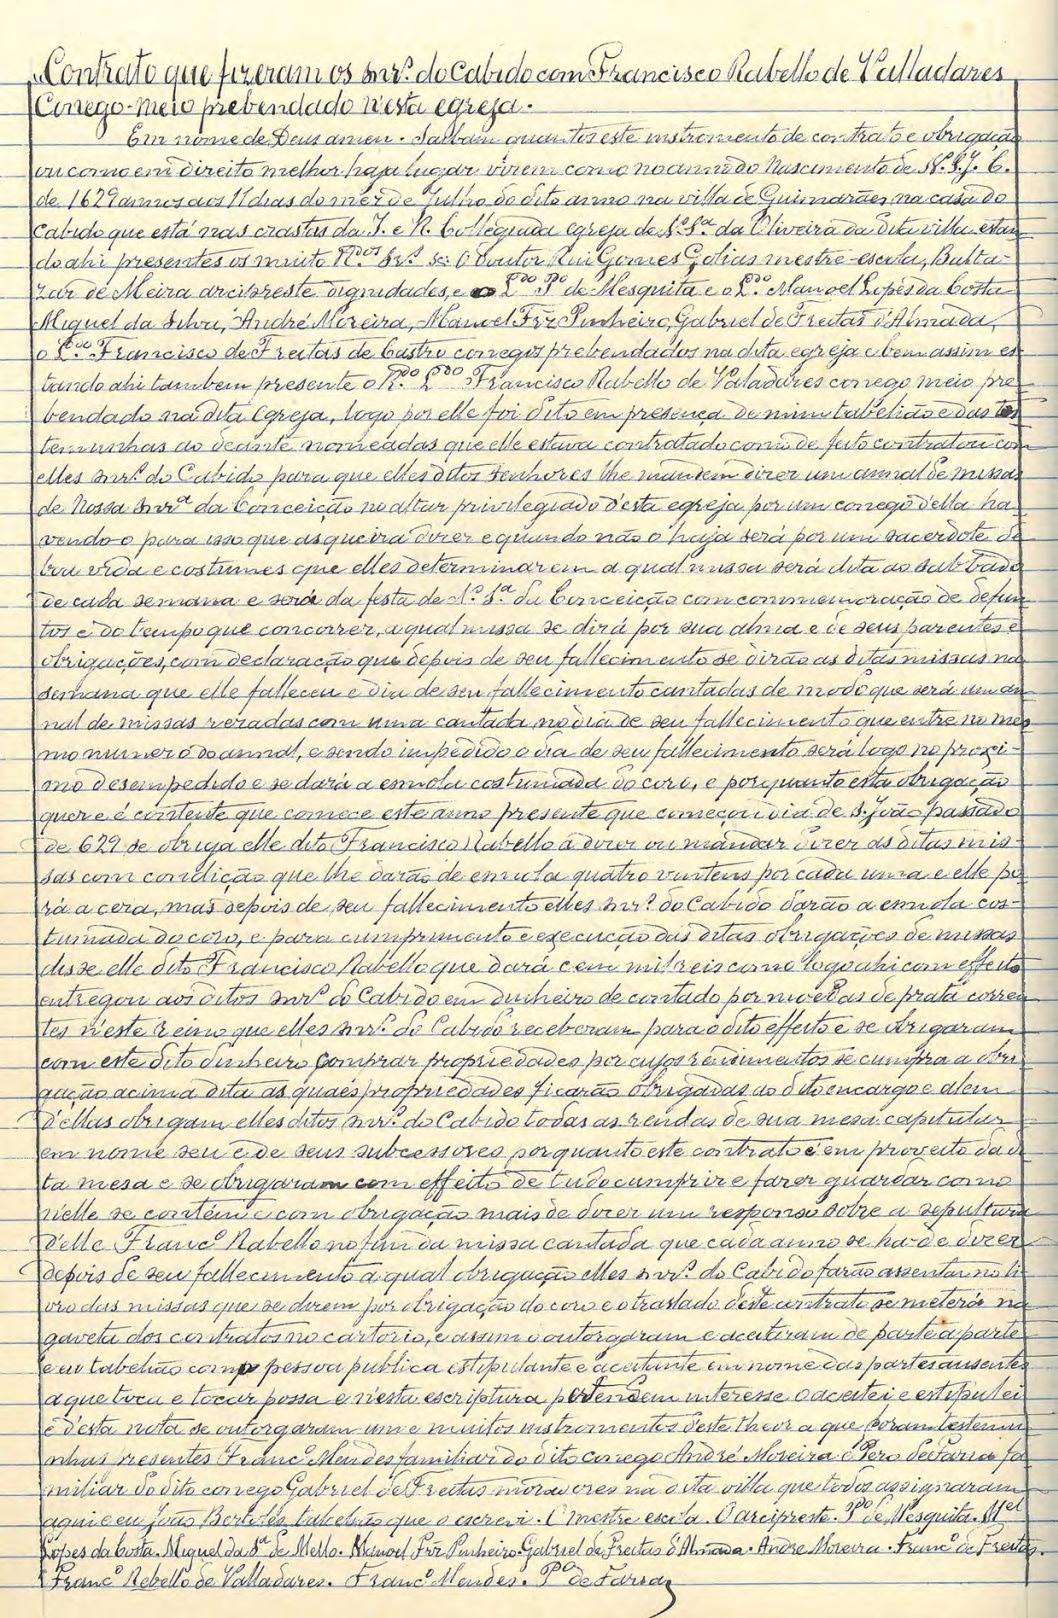 Contrato que fizeram os snrs. do Cabido com Francisco Rabello de Valladares
Conego-meio prebendado n'esta egreja.
Em nome de Deus amen. Saibam quantos este instromento de contrato e obrigação
ou como em direito melhor haja lugar virem como no anno do Nascimento de N. S. J. C.
de 1629 annos aos 11 dias do mez de Julho do dito anno na villa de Guimarães na casa do
Cabido que está nas crastas da I. e R. Collegiada egreja de N.ª S.ª da Oliveira da dita villa estan
do ahi presentes os muito R.dos Srs. sc: O Doutor Rui Gomes Golias mestre-escola, Balta-
zar de Meira arcipreste dignidades, e o L.do P.o de Mesquita e o L.do Manoel Lopes da Costa
Miguel da Silva, André Moreira, Manoel Frz Pinheiro, Gabriel de Freitas d'Almada,
o L.do Francisco de Freitas de Castro conegos prebendados na dita egreja e bem assim es-
tando ahi tambem presente o R.do L.do Francisco Rabello de Valadares conego meio pre
bendado na dita egreja, logo por elle foi dito em presença de mim tabelião e das tes
temunhas ao deante nomeadas que elle estava contratado como de feito contratou com
elles snrs. do Cabido para que elles ditos senhores lhe mandem dizer um annal de missas
de Nossa Snr.ª da Conceição no altar privilegiado d'esta egreja por um conego d'ella ha
vendo-o para isso que as queira dizer e quando não o haja será por um sacerdote de
boa vida e costumes que elles determinarem a qual missa será dita ao sabbado
de cada semana e será da festa de N.ª S.ª da Conceição com commemoração de defun
tos e do tempo que concorrer, a qual missa se dirá por sua alma e de seus parentes e
obrigações, com declaração que depois de seu fallecimento se dirão as ditas missas na
semana que elle falleceu e dia de seu fallecimento cantadas de modo que será um an
nal de missas rezadas com uma cantada no dia de seu fallecimento que entre no mes
mo numero do annal, e sendo impedido o dia de seu fallecimento será logo no proxi-
mo desempedido e se dará a esmola costumada do coro, e porquanto esta obrigação
quer e é contente que comece este anno presente que começou dia de S. João passado
de 629 se obriga elle dito Francisco Rabello a dizer ou mandar dizer as ditas mis-
sas com condição que lhe darão de esmola quatro vintens por cada uma e elle po
rá a cera, mas depois de seu fallecimento elles snrs. do Cabido darão a esmola cos-
tumada do coro, e para cumprimento e execução das ditas obrigações de missas
disse elle dito Francisco Rabello que dará cem mil reis como logo ahi com effeito
entregou aos ditos snrs. do Cabido em dinheiro de contado por moedas de prata corren
tes n'este reino que elles snrs. do Cabido receberam para o dito effeito e se obrigaram
com este dito dinheiro comprar propriedades por cujos rendimentos se cumpra a obri
gação acima dita as quaes propriedades ficarão obrigadas ao dito encargo e alem
d'ellas obrigam elles ditos snrs. do Cabido todas as rendas de sua mesa capitular
em nome seu e de seus subcessores porquanto este contrato é em proveito da di
ta mesa e se obrigaram com effeito de tudo cumprir e fazer guardar como
n'elle se contém e com obrigação mais de dizer um responso sobre a sepultura
d'elle Franc.o Rabello no fim da missa cantada que cada anno se ha-de dizer
depois de seu fallecimento a qual obrigação elles snrs. do Cabido farão assentar no li
vro das missas que se dizem por obrigação do coro e o traslado d'este contrato se meterá na
gaveta dos contratos no cartorio, e assim o outorgaram e aceitaram de parte a parte
e eu tabelião como pessoa publica estipulante e aceitante em nome das partes ausentes
a que toca e tocar possa e n'esta escriptura pertendem interesse o aceitei e estipulei
e d'esta nota se outorgaram um e muitos instromentos d'este theor a que foram testemu
nhas presentes Franc.o Mendes familiar do dito conego André Moreira e Pero de Faria fa
miliar do dito conego Gabriel de Freitas moradores na dita villa que todos assignaram
aqui e eu João Bertoles tabelião que o escrevi. O mestre escola. O arcipreste. P.o de Mesquita. M.el
Lopes da Costa. Miguel da S.ª de Mello. Manoel Frz Pinheiro. Gabriel de Freitas d'Almada. André Moreira. Franc.o de Freitas.
Franc.o Rebello de Valladares. Franc.o Mendes. P.o de Faria